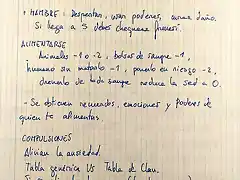 • HAMBRE: Despiertan, usan poderes, curar daño.
Si llega a 5 debes chequear frenesí.
ALIMENTARSE
Animales -1 o -2, bolsas de sangre -1,
humano sin matarlo -1, ponerlo en riesgo -2,
drenarlo de toda sangre reduce la sed a 0.
- Se obtienen recuerdos, emociones y poderes de
quien te alimentas.
COMPULSIONES
Alivian la ansiedad.
Tabla genérica Vs Tabla de Clan.